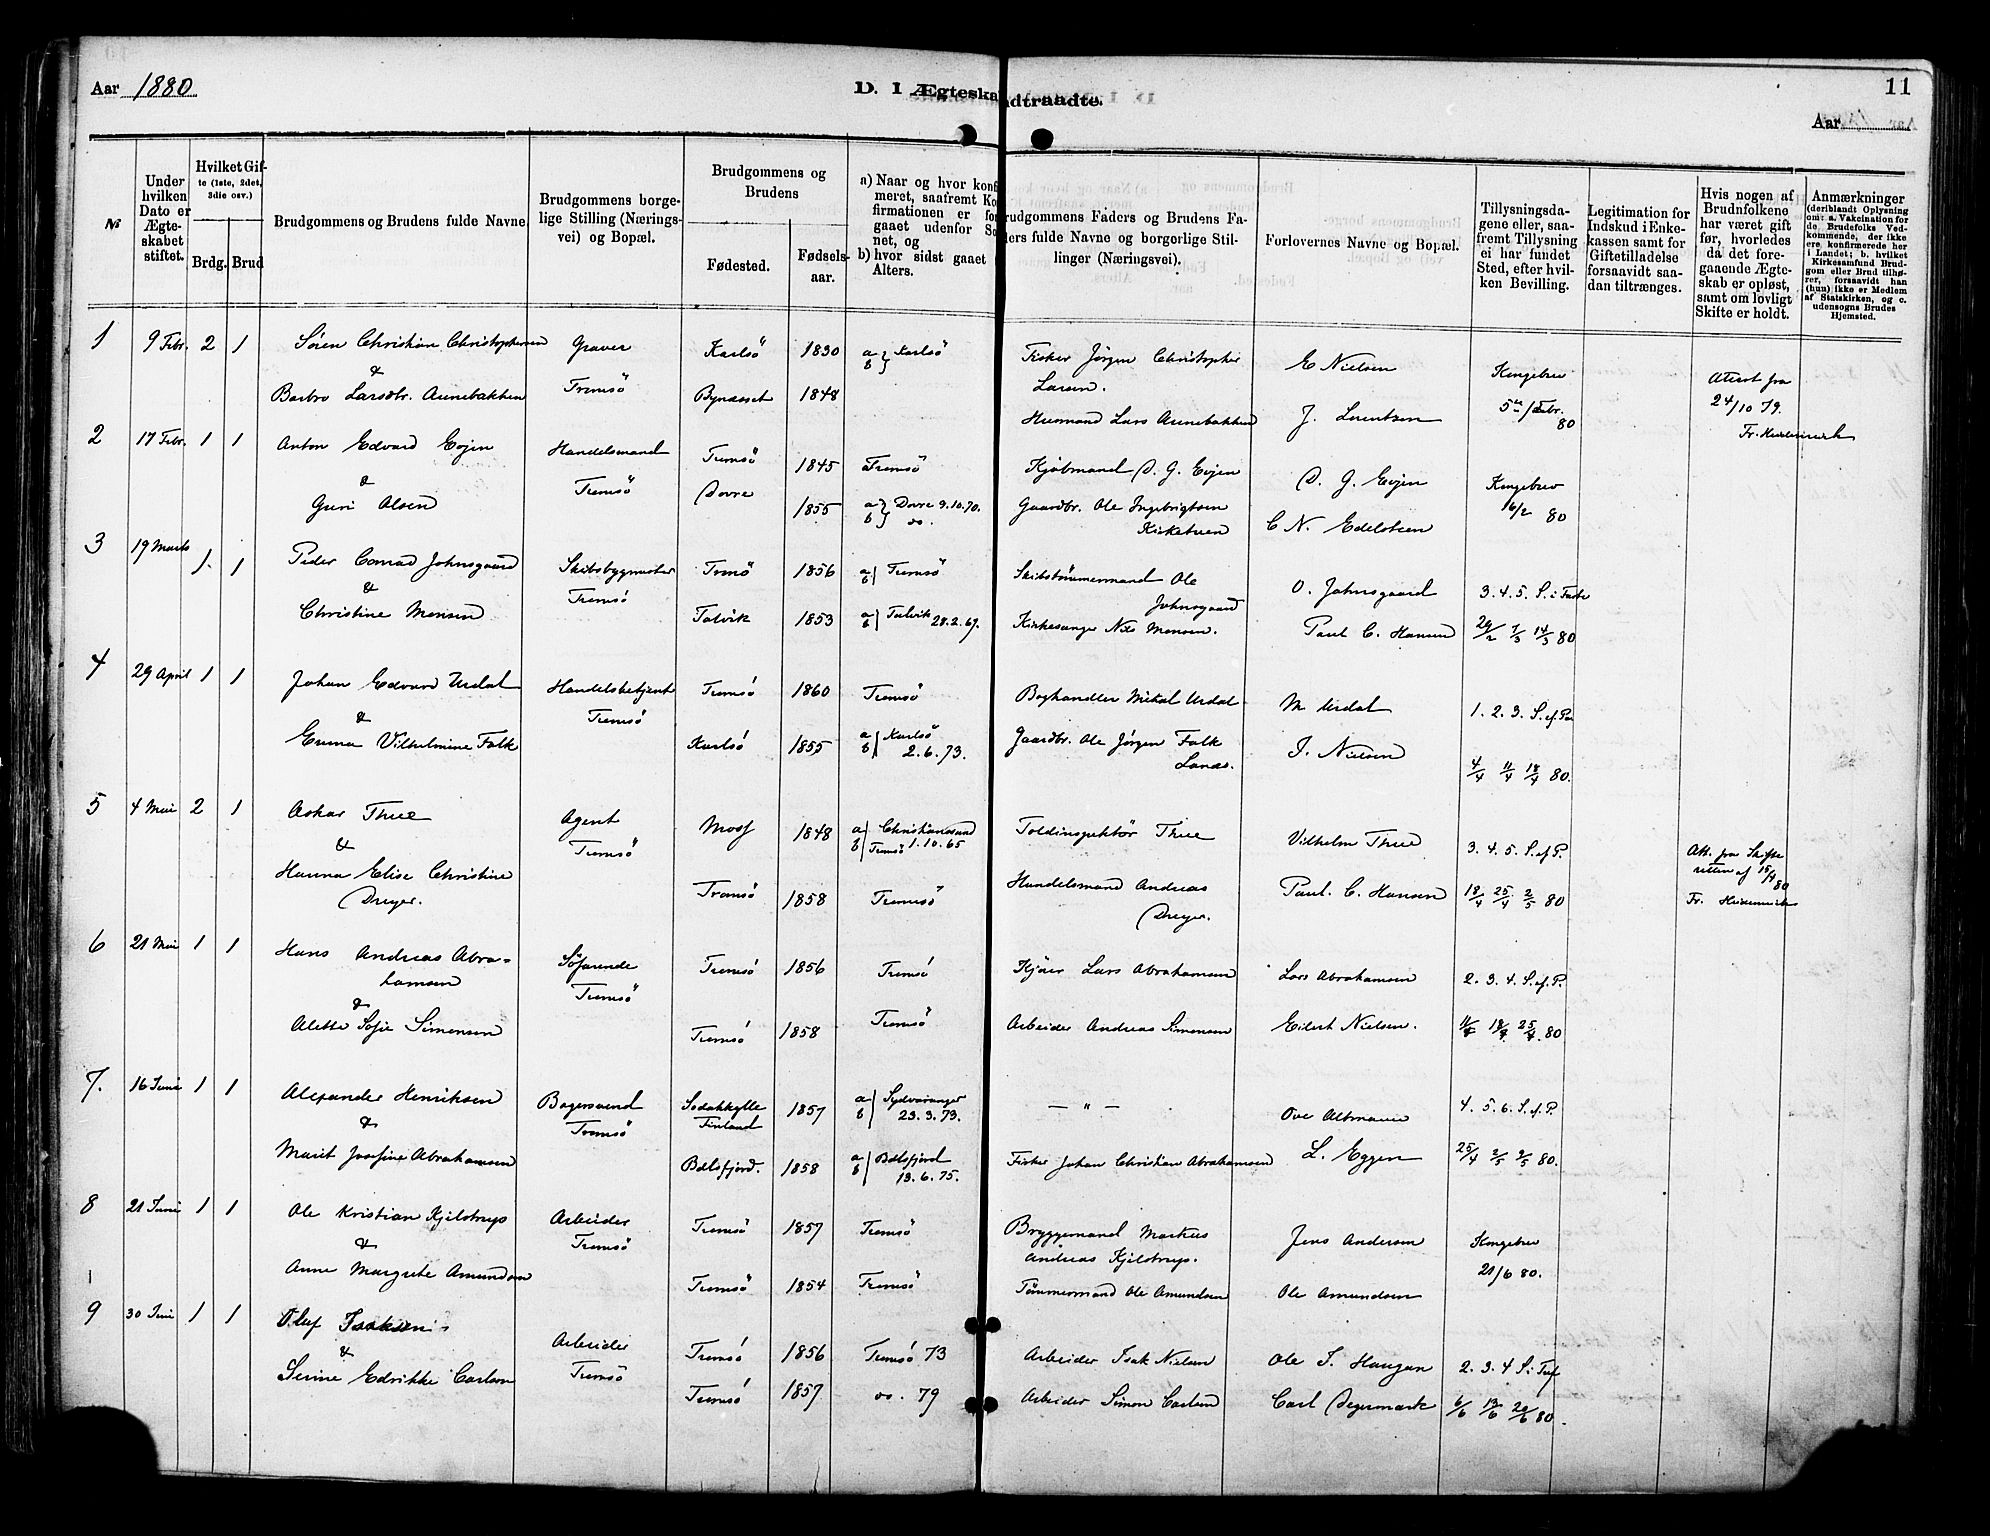 Aar 1880
D. I Ægteska
ndtraadte.
11
Aar
№
Under hvilken Dato er Ægteskabet stiftet.
Hvilket Gifte (1ste, 2det, 3die osv.)
Brdg. Brud
Brudgommens og Brudens fulde Navne
Brudgommens borgelige Stilling (Næringsvei) og Bopæl.
Brudgommens og Brudens
Fødested.
Fødselsaar.
a) Naar og hvor konf
meret, saafremt Ko
firmationen er for
gaaet udenfor So
net, og
b) hvor sidst gaaet
Alters.
rudgommens Faders og Brudens Fa-
ders fulde Navne og borgorlige Stil-
linger (Næringsvei).
Forlovernes Navne og Bopæl.
Tillysningsda-
gene eller, saa-
fremt Tillysning
ei har fundet
Sted, efter hvil-
ken Bevilling.
Legitimation for
Indskud i Enke-
kassen samt for
Giftetilladelse
forsaavidt saa-
dan tiltrænges.
Hvis nogen af
Brudnfolkene
har været gift
før, hvorledes
da det fore-
gaaende Ægte-
skab er opløst,
samt om lovligt
Skifte er holdt.
Anmærkninger
(deriblandt Oplysning
om: a. Vakcination for
de Brudefolks Ved-
kommende, der ikke
ere konfirmerede her
i Landet; b. hvilket
Kirkesamfund Brud-
gom eller Brud tilhø-
rer, forsaavidt han
(hun) ikke er Medlem
af Statskirken, og c.
udensogns Brudes
Hjemsted.
1 9 Febr. 2 1 Sören Christian Christophersen Graver Karlsö 1830 a b } Karlsö Fisker Jörgen Christopher Larsen. E Nielsen Kongebrev Attest fra
& Tromsö
Barbro Larsdtr. Aunebakken Bynæsset 1848 Husmand Lars Aunebakken J. Lorentzen 5te/Febr. 80 24/10 79.
2 17 Febr. 1 1 Anton Edvard Evjen Handelsmand Tromsö 1845 Tromsö Kjöbmand D. G. Evjen D. G. Evjen Kongebrev
& Tromsö
Guri Olsen Dovre 1855 a b } Dovre 9.10.70. do. Gaardbr. Ole Ingebrigtsen C N. Edelsteen 16/2 80
3 19 Marts 1. 1 Peder Conrad Johnsgaard Skibsbygmester Tromsö 1856 a b } Tromsö Skibstömmermand Ole Johnsgaard O. Johnsgaard 3. 4. 5. S. i Faste
& Tromsö
Christine Monsen Talvik 1853 a b } Talvik 28.2.69. Kirkesanger Nils Monsen. Paul C. Hansen 29/2 7/3 14/3 80
4 29 April 1 1 Johan Edvard Urdal Handelsbetjent Tromsö 1860 Tromsö Boghandler Mikal Urdal M Urdal 1. 2. 3. S. ef. Paa
& Tromsö
Emma Vilhelmine Falk Karlsö 1855 a b } Karlsö 2.6.73. Gaardbr. Ole Jörgen Falk J. Nielsen 4/4 11/4 18/4 80.
5 4 Mai 2 1 Oskar Thue Agent Moss 1848 a b } Christiansund 1.10.65 Tromsö Toldinspektör Thue Vilhelm Thue 3. 4. 5. S. ef. P. Att. fra Skifteretten af 15/4 80
& Tromsö
Hanna Elise Christine Dreyer. Tromsö 1858 Tromsö Handelsmand Andreas Dreyer. Paul. C. Hansen 18/4 25/4 2/5 80
6 21 Mai 1 1 Hans Andreas Abrahamsen Söfarende Tromsö 1856 Tromsö Lars Abrahamsen Lars Abrahamsen 2. 3. 4. S. ef. P.
& Tromsö
Alette Sofie Simonsen Tromsö 1858 Tromsö Arbeider Andreas Simonsen Eilert Nielsen. 11/4 18/4 25/4. 80
7. 16 Juni 1 1 Alexander Henriksen Bagersvend Sodankylle Finland 1857 a b } Sydvaranger 23.3.73. — " — Ove Altmann 4. 5. 6. S. ef. P.
& Tromsö
Marit Josefine Abrahamsen Balsfjord. 1858 a b } Balsfjord 13.6.75. Fisker Johan Christian Abrahamsen L. Eggen 25/4 2/5 9/5 80.
8 21 Juni 1 1 Ole Kristian Kjilstrup Arbeider Tromsö 1857 Tromsö Bryggemand Markus Andreas Kjilstrup. Jens Andersen Kongebrev
& Tromsö
Anne Margrete Amundsen Tromsö 1854 Tromsö Tömmermand Ole Amundsen Ole Amundsen 21/6 80.
9 30 Juni 1 1 Oluf Isaksen Arbeider Tromsö 1856 Tromsö 73 Arbeider Isak Nielsen Ole J. Haugan 2. 3. 4 S. i Tref
& Tromsö
Serine Edrikke Carlsen Tromsö 1857 do. 79 Arbeider Simon Carlsen Carl Degermark 6/6 13/6 20/6 80.